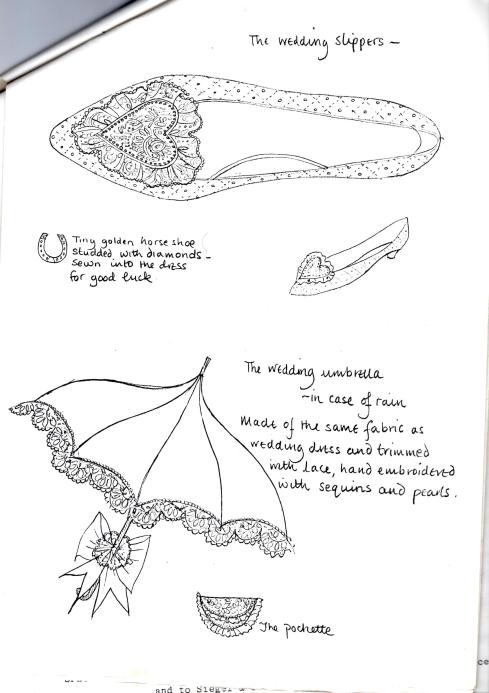 The wedding slippers –
Tiny golden horse shoe
studded with diamonds –
sewn into the dress
for good luck
The wedding umbrella
– in case of rain
Made of the same fabric as
wedding dress and trimmed
with lace, hand embroidered
with sequins and pearls.
The pochette
ce
and to